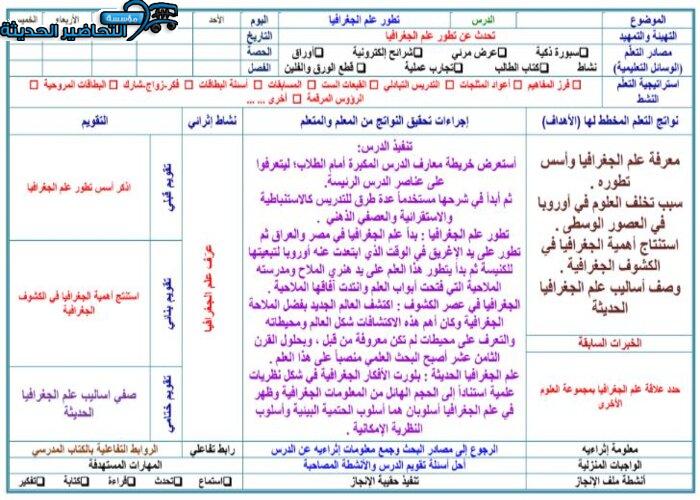 الموضوع الدرس تطور علم الجغرافيا اليوم الأحد الأربعاء الخميس
مؤسسة
التحاضير الحديثة
التهيئة والتمهيد تحدث عن تطور علم الجغرافيا التاريخ
مصادر التعلم سبورة ذكية عرض مرئي شرائح إلكترونية أوراق الحصة
(الوسائل التعليمية) نشاط كتاب الطالب تجارب عملية قطع الورق والفلين الفصل
استراتيجية التعلم فرز المفاهيم أعواد المثلجات التدريس التبادلي القبعات الست المسابقات أسئلة البطاقات فكر-زواج-شارك البطاقات المروحية
النشط الرؤوس المرقمة أخرى ... ...
نواتج التعلم المخطط لها (الأهداف) إجراءات تحقيق النواتج من المعلم والمتعلم نشاط إثرائي التقويم
معرفة علم الجغرافيا وأسس
تطوره .
سبب تخلف العلوم في أوروبا
في العصور الوسطى .
استنتاج أهمية الجغرافيا في
الكشوف الجغرافية .
وصف أساليب علم الجغرافيا
الحديثة
الخبرات السابقة
حدد علاقة علم الجغرافيا بمجموعة العلوم
الأخرى
تنفيذ الدرس:
أستعرض خريطة معارف الدرس المكبرة أمام الطلاب؛ ليتعرفوا
على عناصر الدرس الرئيسة.
ثم أبدأ في شرحها مستخدماً عدة طرق للتدريس كالاستنباطية
والاستقرائية والعصفي الذهني .
تطور علم الجغرافيا : بدأ علم الجغرافيا في مصر والعراق ثم
تطور على يد الإغريق في الوقت الذي ابتعدت عنه أوروبا لتبعيتها
للكنيسة ثم بدأ يتطور هذا العلم على يد هنري الملاح ومدرسته
الملاحية التي فتحت أبواب العلم وامتدت آفاقها الملاحية .
الجغرافيا في عصر الكشوف : اكتشف العالم الجديد بفضل الملاحة
الجغرافية وكان أهم هذه الاكتشافات شكل العالم ومحيطاته
والتعرف على محيطات لم تكن معروفة من قبل ، وبحلول القرن
الثامن عشر أصبح البحث العلمي منصباً على هذا العلم .
علم الجغرافيا الحديثة : بلورت الأفكار الجغرافية في شكل نظريات
علمية استناداً إلى الحجم الهائل من المعلومات الجغرافية وظهر
في علم الجغرافيا أسلوبان هما أسلوب الحتمية البيئية وأسلوب
النظرية الإمكانية .
عرّف علم الجغرافيا
تقويم قبلي
اذكر أسس تطور علم الجغرافيا
تقويم بنائي
استنتج أهمية الجغرافيا في الكشوف
الجغرافية
تقويم ختامي
صفي اساليب علم الجغرافيا
الحديثة
معلومة إثرائيه الرجوع إلى مصادر البحث وجمع معلومات إثراءيه عن الدرس رابط تفاعلي الروابط التفاعلية بالكتاب المدرسي
الواجبات المنزلية أحل أسئلة تقويم الدرس والأنشطة المصاحبة المهارات المستهدفة
أنشطة ملف الإنجاز تنفيذ حقيبة الإنجاز استماع تحدث قراءة كتابة تفكير